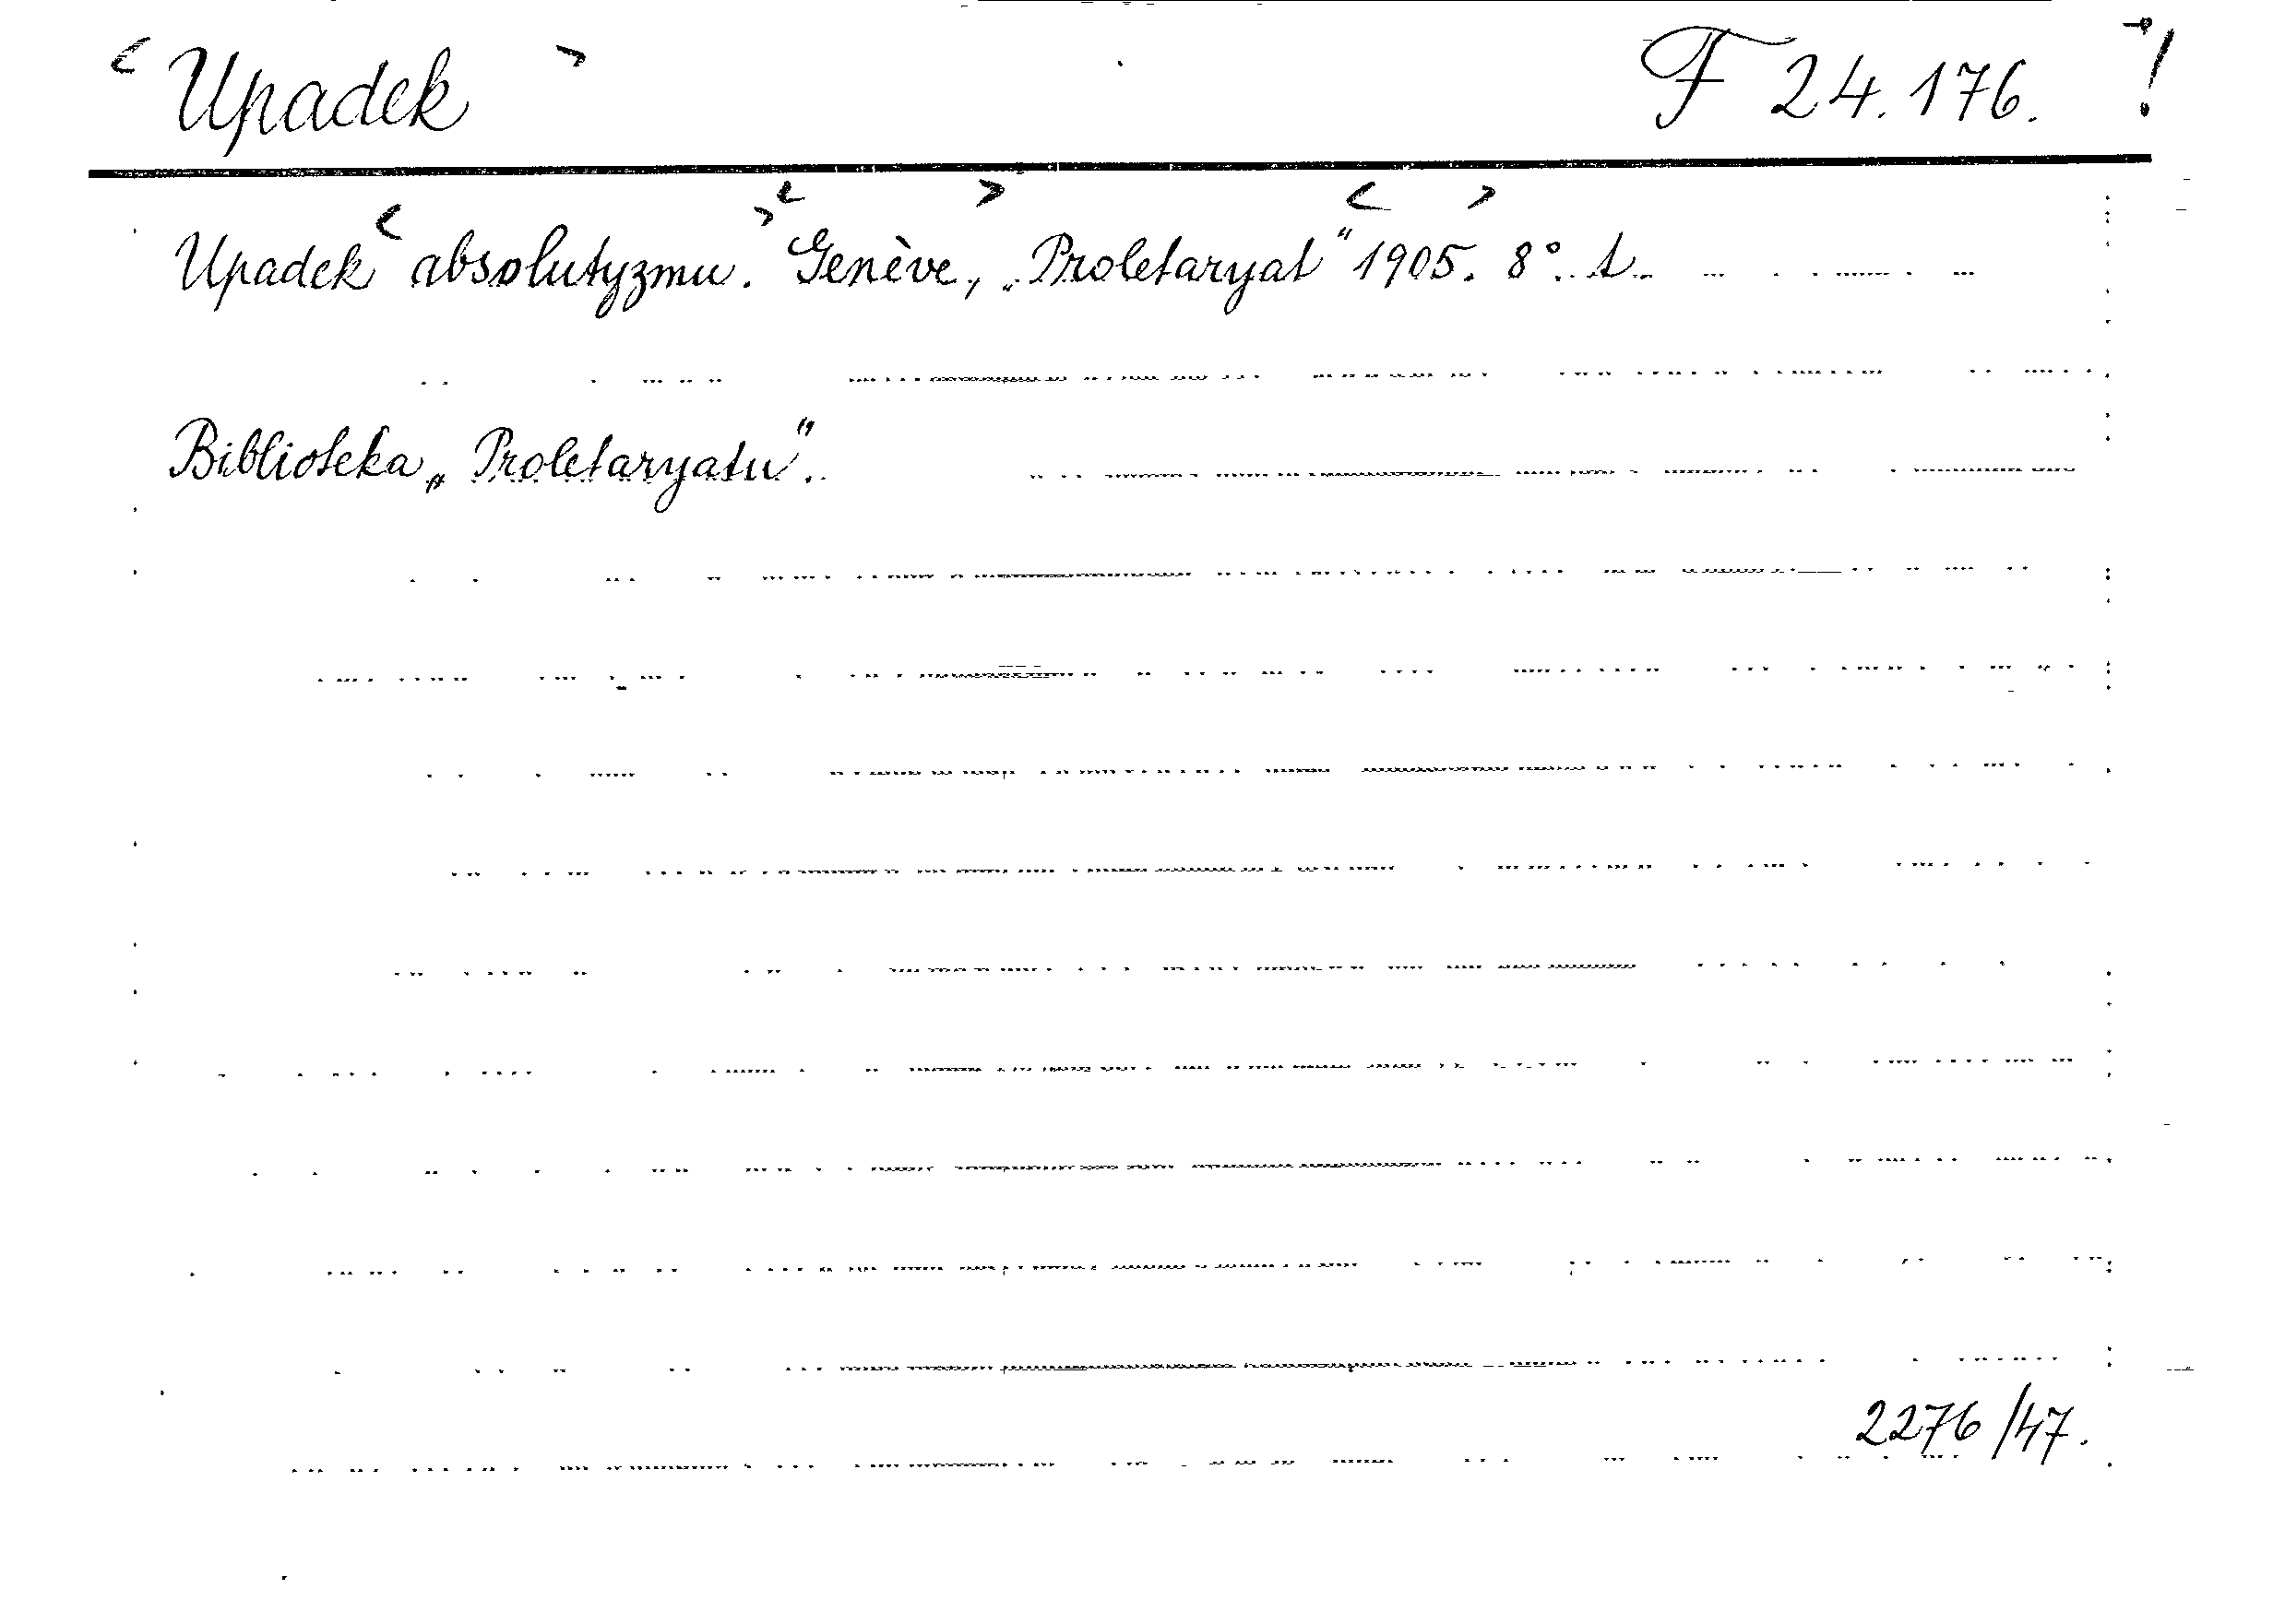 < Upadek > F 24.176. !
Upadek < absolutyzmu. > < Genève, > „Proletaryat" < 1905. > 8°.
Biblioteka „Proletaryatu".
2276/47.